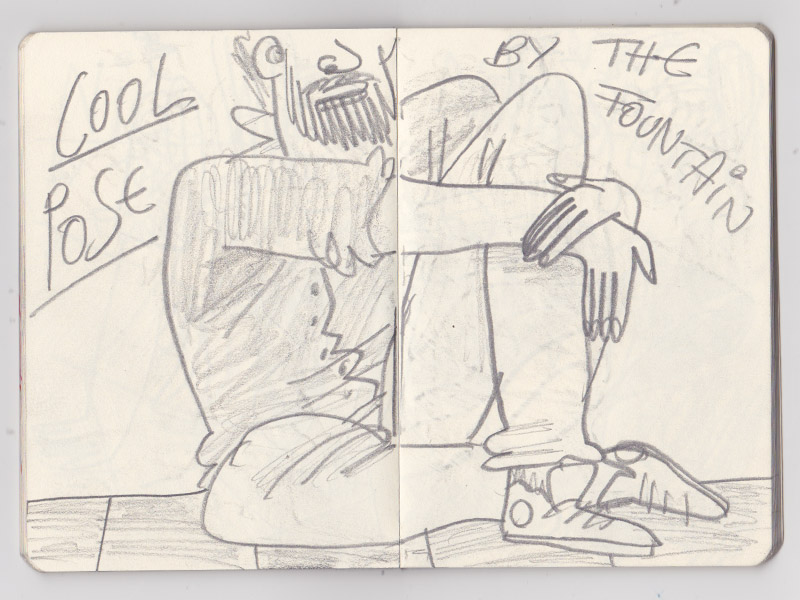 COOL
POSE
BY THE
FOUNTAIN